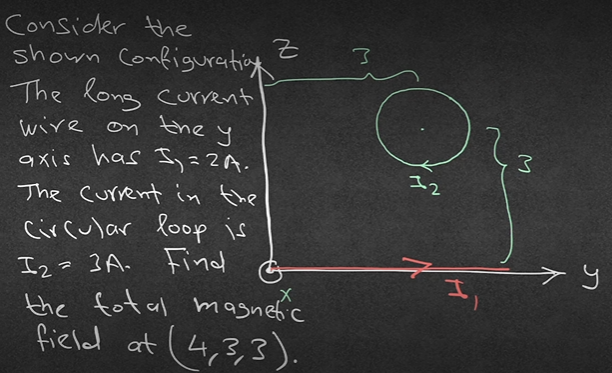 Consider the
shown configuration
The long current
wire on the y
axis has I₁=2A.
The current in the
circular loop is
I₂ = 3A. Find
the total magnetic
field at (4,3,3).
Z
3
I₂
3
x
I₁
y